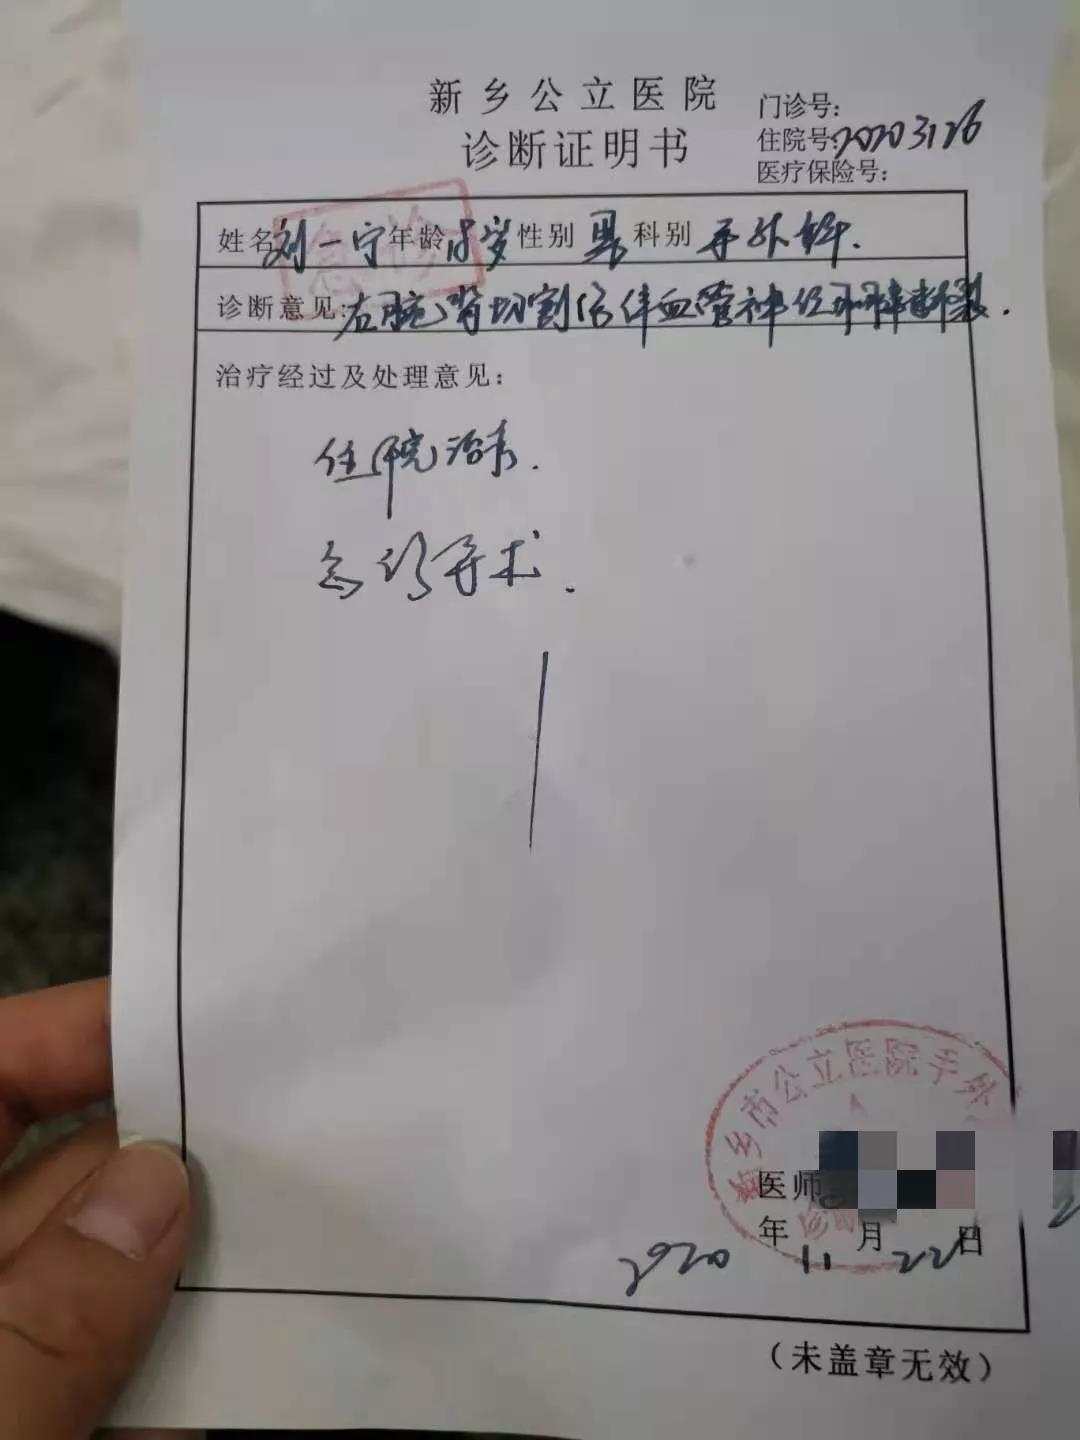 新乡公立医院
诊断证明书
门诊号:
住院号:20203126
医疗保险号:
急诊
姓名 刘一宁 年龄 18岁 性别 男 科别 手外科.
诊断意见: 右腕背切割伤伴血管神经肌腱断裂.
治疗经过及处理意见:
住院治疗.
急诊手术.
新乡市公立医院手外
医师
2020年11月22日
(未盖章无效)